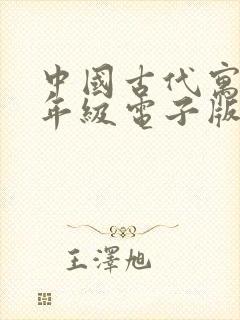 中國古代寓
年級電子版
王澤旭